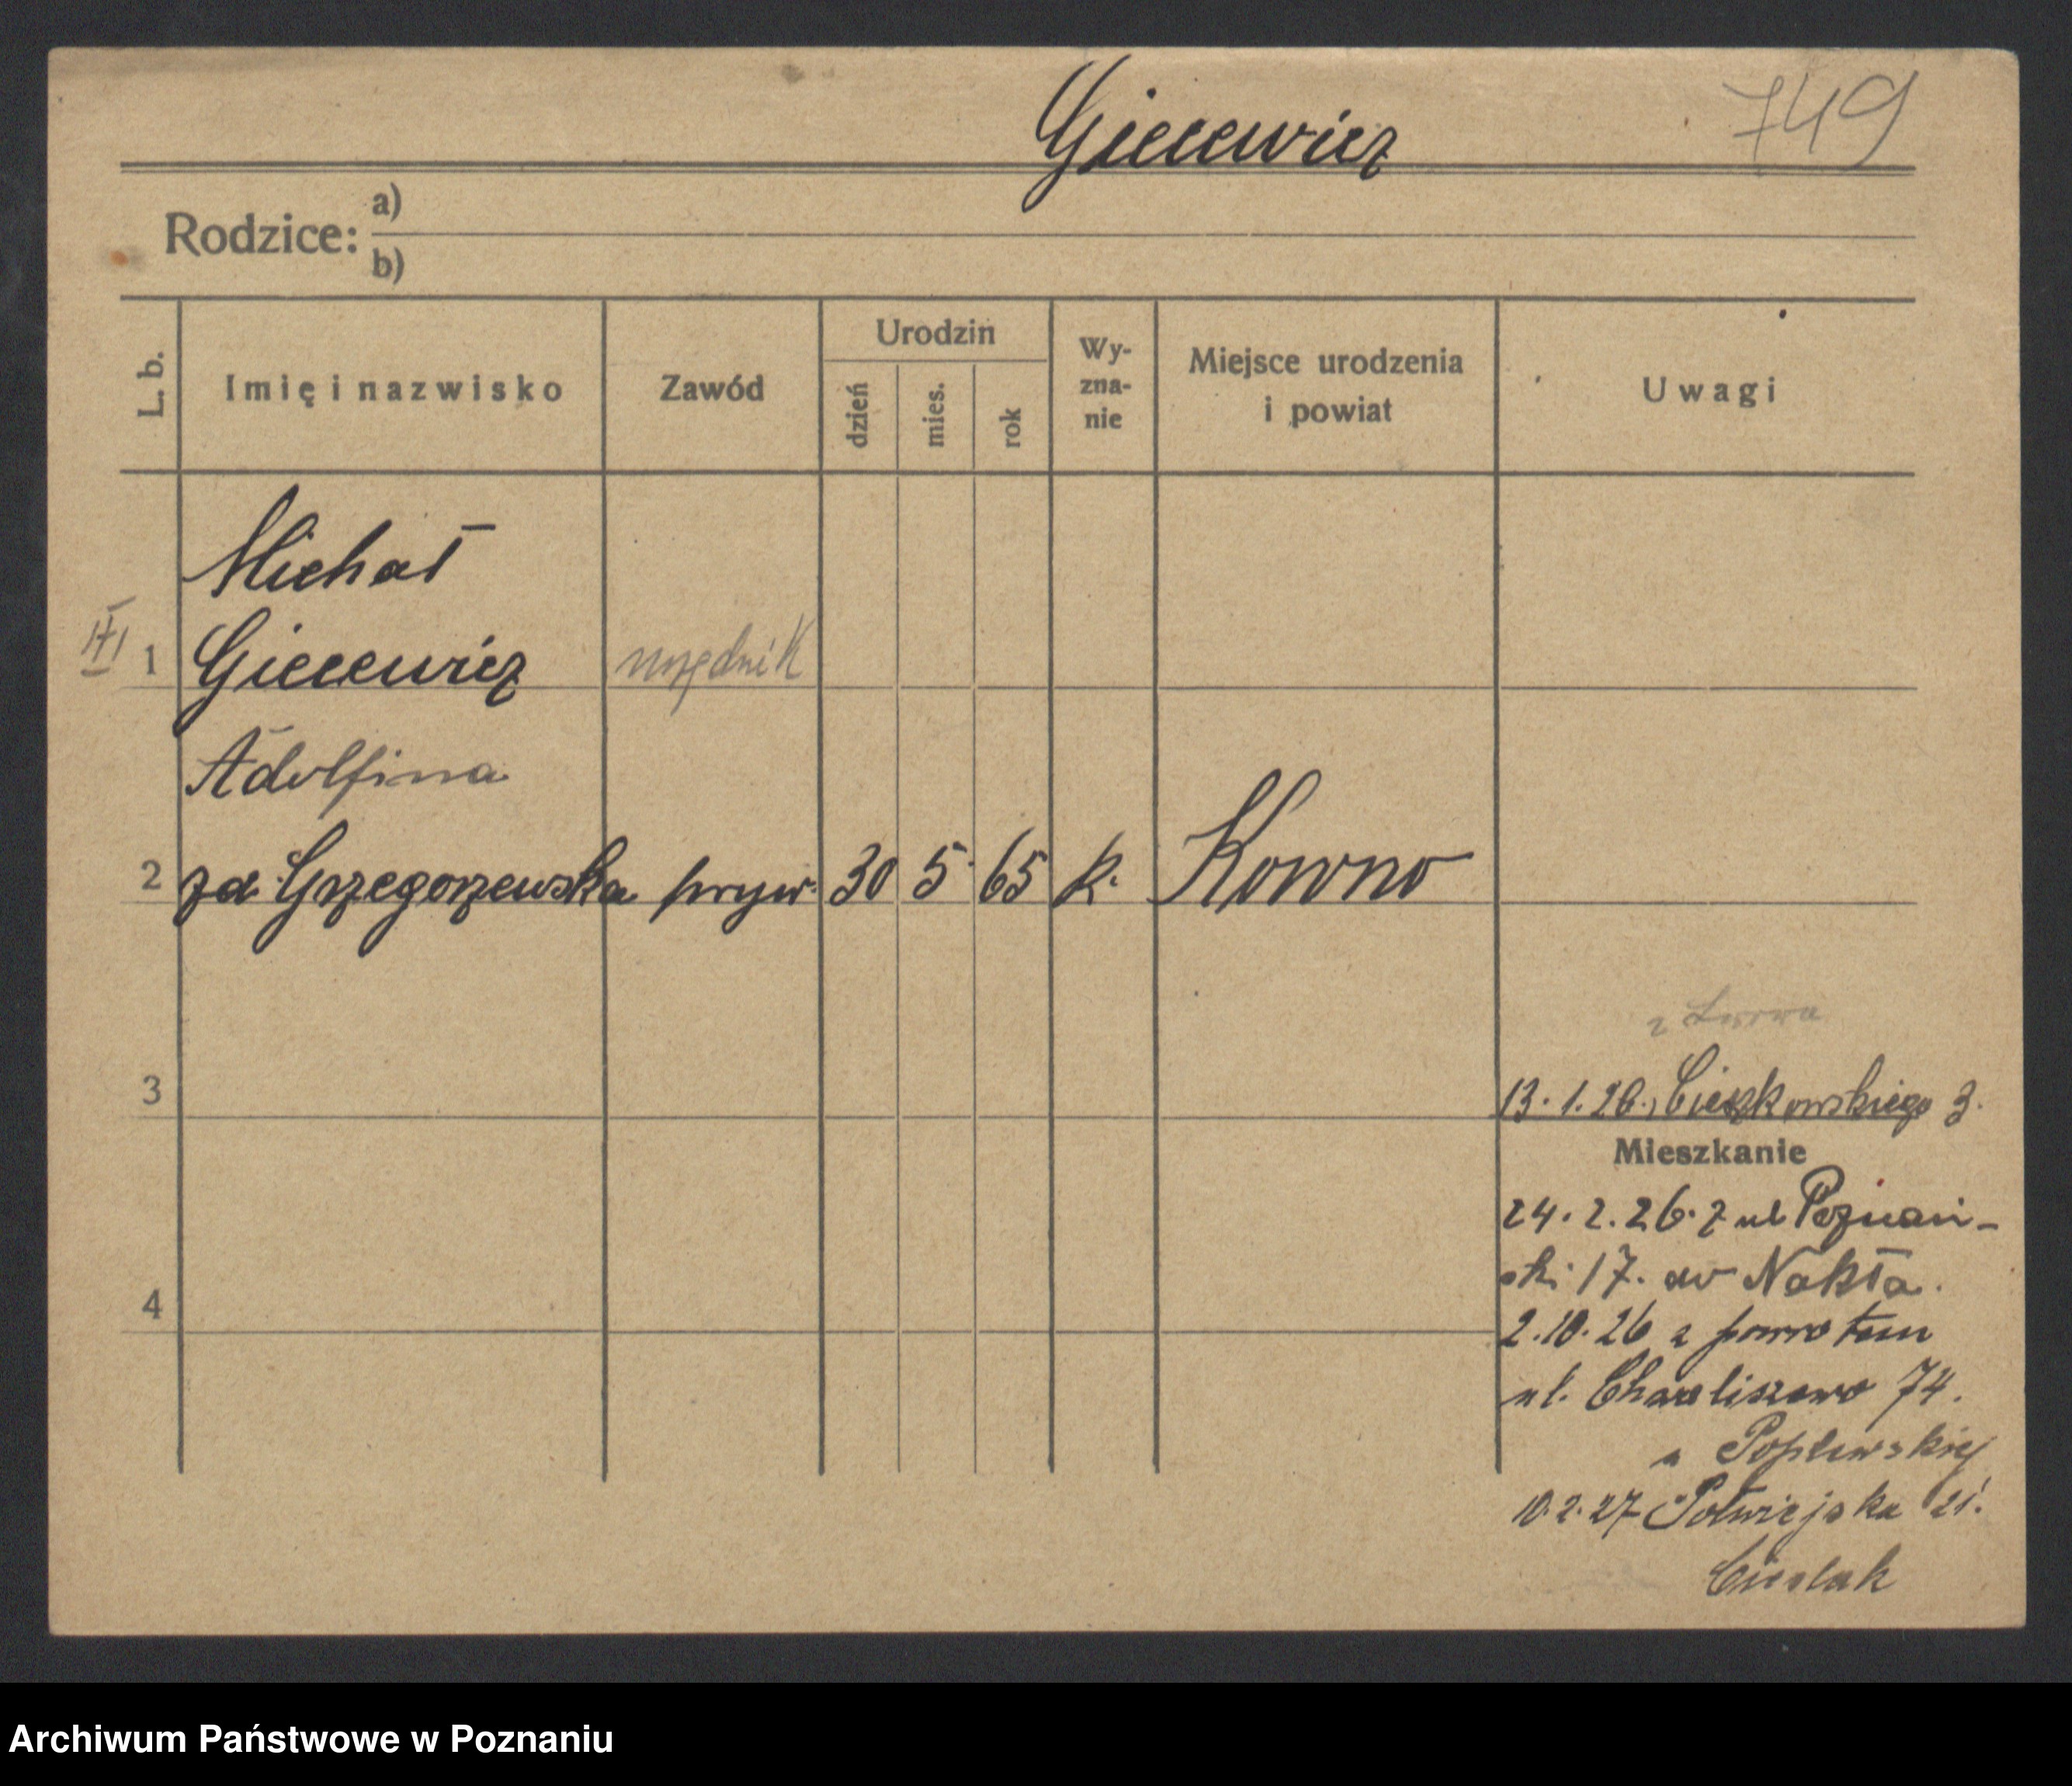 Giecewicz
749
Rodzice:
a)
b)
L. b.
Imię i nazwisko
Zawód
Urodzin
dzień
mies.
rok
Wy-
zna-
nie
Miejsce urodzenia
i powiat
Uwagi
Michał
1 Giecewicz urzędnik
Adolfina
2 zd Grzegorzewska pryw. 30 5 65 k. Kowno
z Lwowa
3
13.1.26., Cieszkowskiego 3.
Mieszkanie
24.2.26. z ul Poznań-
ski 17. do Nakła.
4
2.10.26 z powrotem
ul. Chwaliszewo 74.
u Poplewskiej
10.2.27 Półwiejska 21.
Cieslak
Archiwum Państwowe w Poznaniu